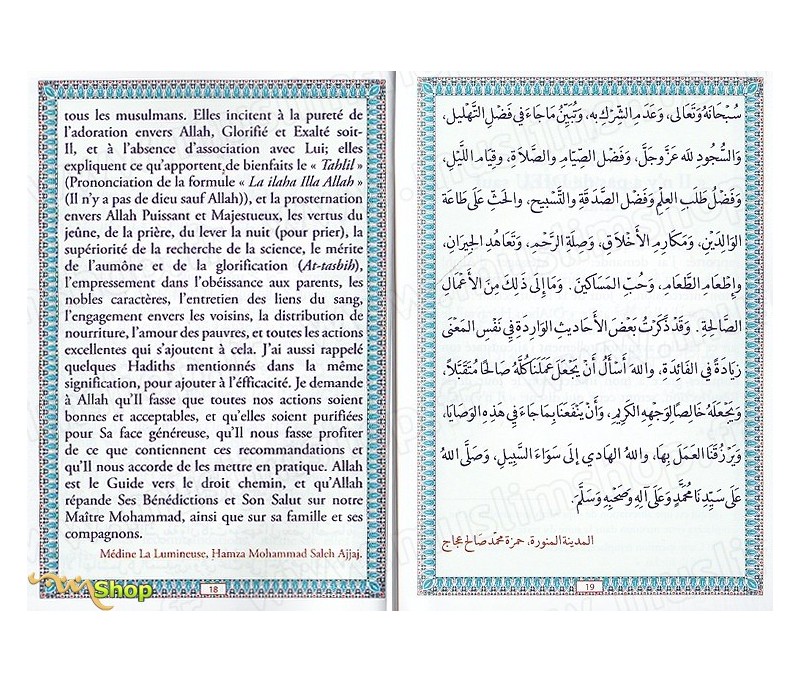 tous les musulmans. Elles incitent à la pureté de
l'adoration envers Allah, Glorifié et Exalté soit-
Il, et à l'absence d'association avec Lui; elles
expliquent ce qu'apportent de bienfaits le « Tahlil »
(Prononciation de la formule « La ilaha Illa Allah »
(Il n'y a pas de dieu sauf Allah)), et la prosternation
envers Allah Puissant et Majestueux, les vertus du
jeûne, de la prière, du lever la nuit (pour prier), la
supériorité de la recherche de la science, le mérite
de l'aumône et de la glorification (At-tasbih),
l'empressement dans l'obéissance aux parents, les
nobles caractères, l'entretien des liens du sang,
l'engagement envers les voisins, la distribution de
nourriture, l'amour des pauvres, et toutes les actions
excellentes qui s'ajoutent à cela. J'ai aussi rappelé
quelques Hadiths mentionnés dans la même
signification, pour ajouter à l'éfficacité. Je demande
à Allah qu'Il fasse que toutes nos actions soient
bonnes et acceptables, et qu'elles soient purifiées
pour Sa face généreuse, qu'Il nous fasse profiter
de ce que contiennent ces recommandations et
qu'Il nous accorde de les mettre en pratique. Allah
est le Guide vers le droit chemin, et qu'Allah
répande Ses Bénédictions et Son Salut sur notre
Maître Mohammad, ainsi que sur sa famille et ses
compagnons.
Médine La Lumineuse, Hamza Mohammad Saleh Ajjaj.
18
Shop
سُبْحَانَهُ وَتَعَالى، وَعَدَمِ الشِّرْكِ بِهِ، وَتُبَيِّنُ مَا جَاءَ فِي فَضْلِ التَّهْلِيل،
وَالسُّجُودِ للهِ عَزَّ وَجَلَّ، وَفَضْلِ الصِّيَامِ وَالصَّلاَةِ، وَقِيَامِ اللَّيْلِ،
وَفَضْلُ طَلَبِ العِلْمِ وَفَضْلِ الصَّدَقَةِ وَالتَّسْبِيحِ، والحَثِّ عَلَى طَاعَةِ
الوَالِدَيْنِ، وَمَكَارِمِ الأَخْلاَقِ، وَصِلَةِ الرَّحْمِ، وَتَعَاهُدِ الجِيرَانِ،
وإِطْعَامِ الطَّعَامِ، وَحُبِّ المَسَاكِينَ. وَمَا إِلَى ذَلِكَ مِنَ الأَعْمَالِ
الصَّالِحَةِ. وَقَدْ ذَكَرْتُ بَعْضَ الأَحَادِيثِ الوَارِدَةِ فِي نَفْسِ المَعْنَى
زِيَادَةً فِي الفَائِدَةِ، واللهَ أَسْأَلُ أَنْ يَجْعَلَ عَمَلَنَا كُلَّهُ صَالِحًا مُتَقَبَّلاً،
وَيَجْعَلَهُ خَالِصًا لِوَجْهِهِ الكَرِيمِ، وَأَنْ يَنْفَعَنَا بِمَا جَاءَ فِي هَذِهِ الوَصَايَا،
وَيَرْزُقَنَا العَمَلَ بِهَا، واللهُ الهَادِي إِلَى سَوَاءِ السَّبِيلِ، وَصَلَّى اللهُ
عَلَى سَيِّدِنَا مُحَمَّدٍ وَعَلَى آلِهِ وَصَحْبِهِ وَسَلَّمَ.
المدينة المنورة، حمزة محمد صالح عجاج
19